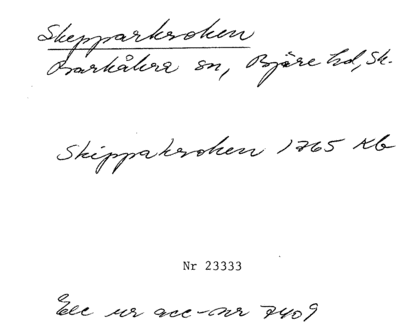 Skepparkroken
Barkåkra sn, Bjäre hd, Sk.
Skippakroken 1765 Kb
Nr 23333
Exc ur acc-nr 7409